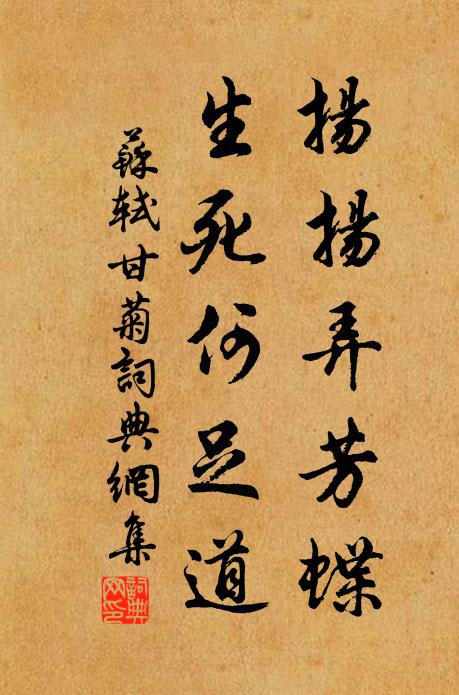 揚揚弄芳蝶
生死何足道
蘇軾甘菊詞典網集
詞典
网印